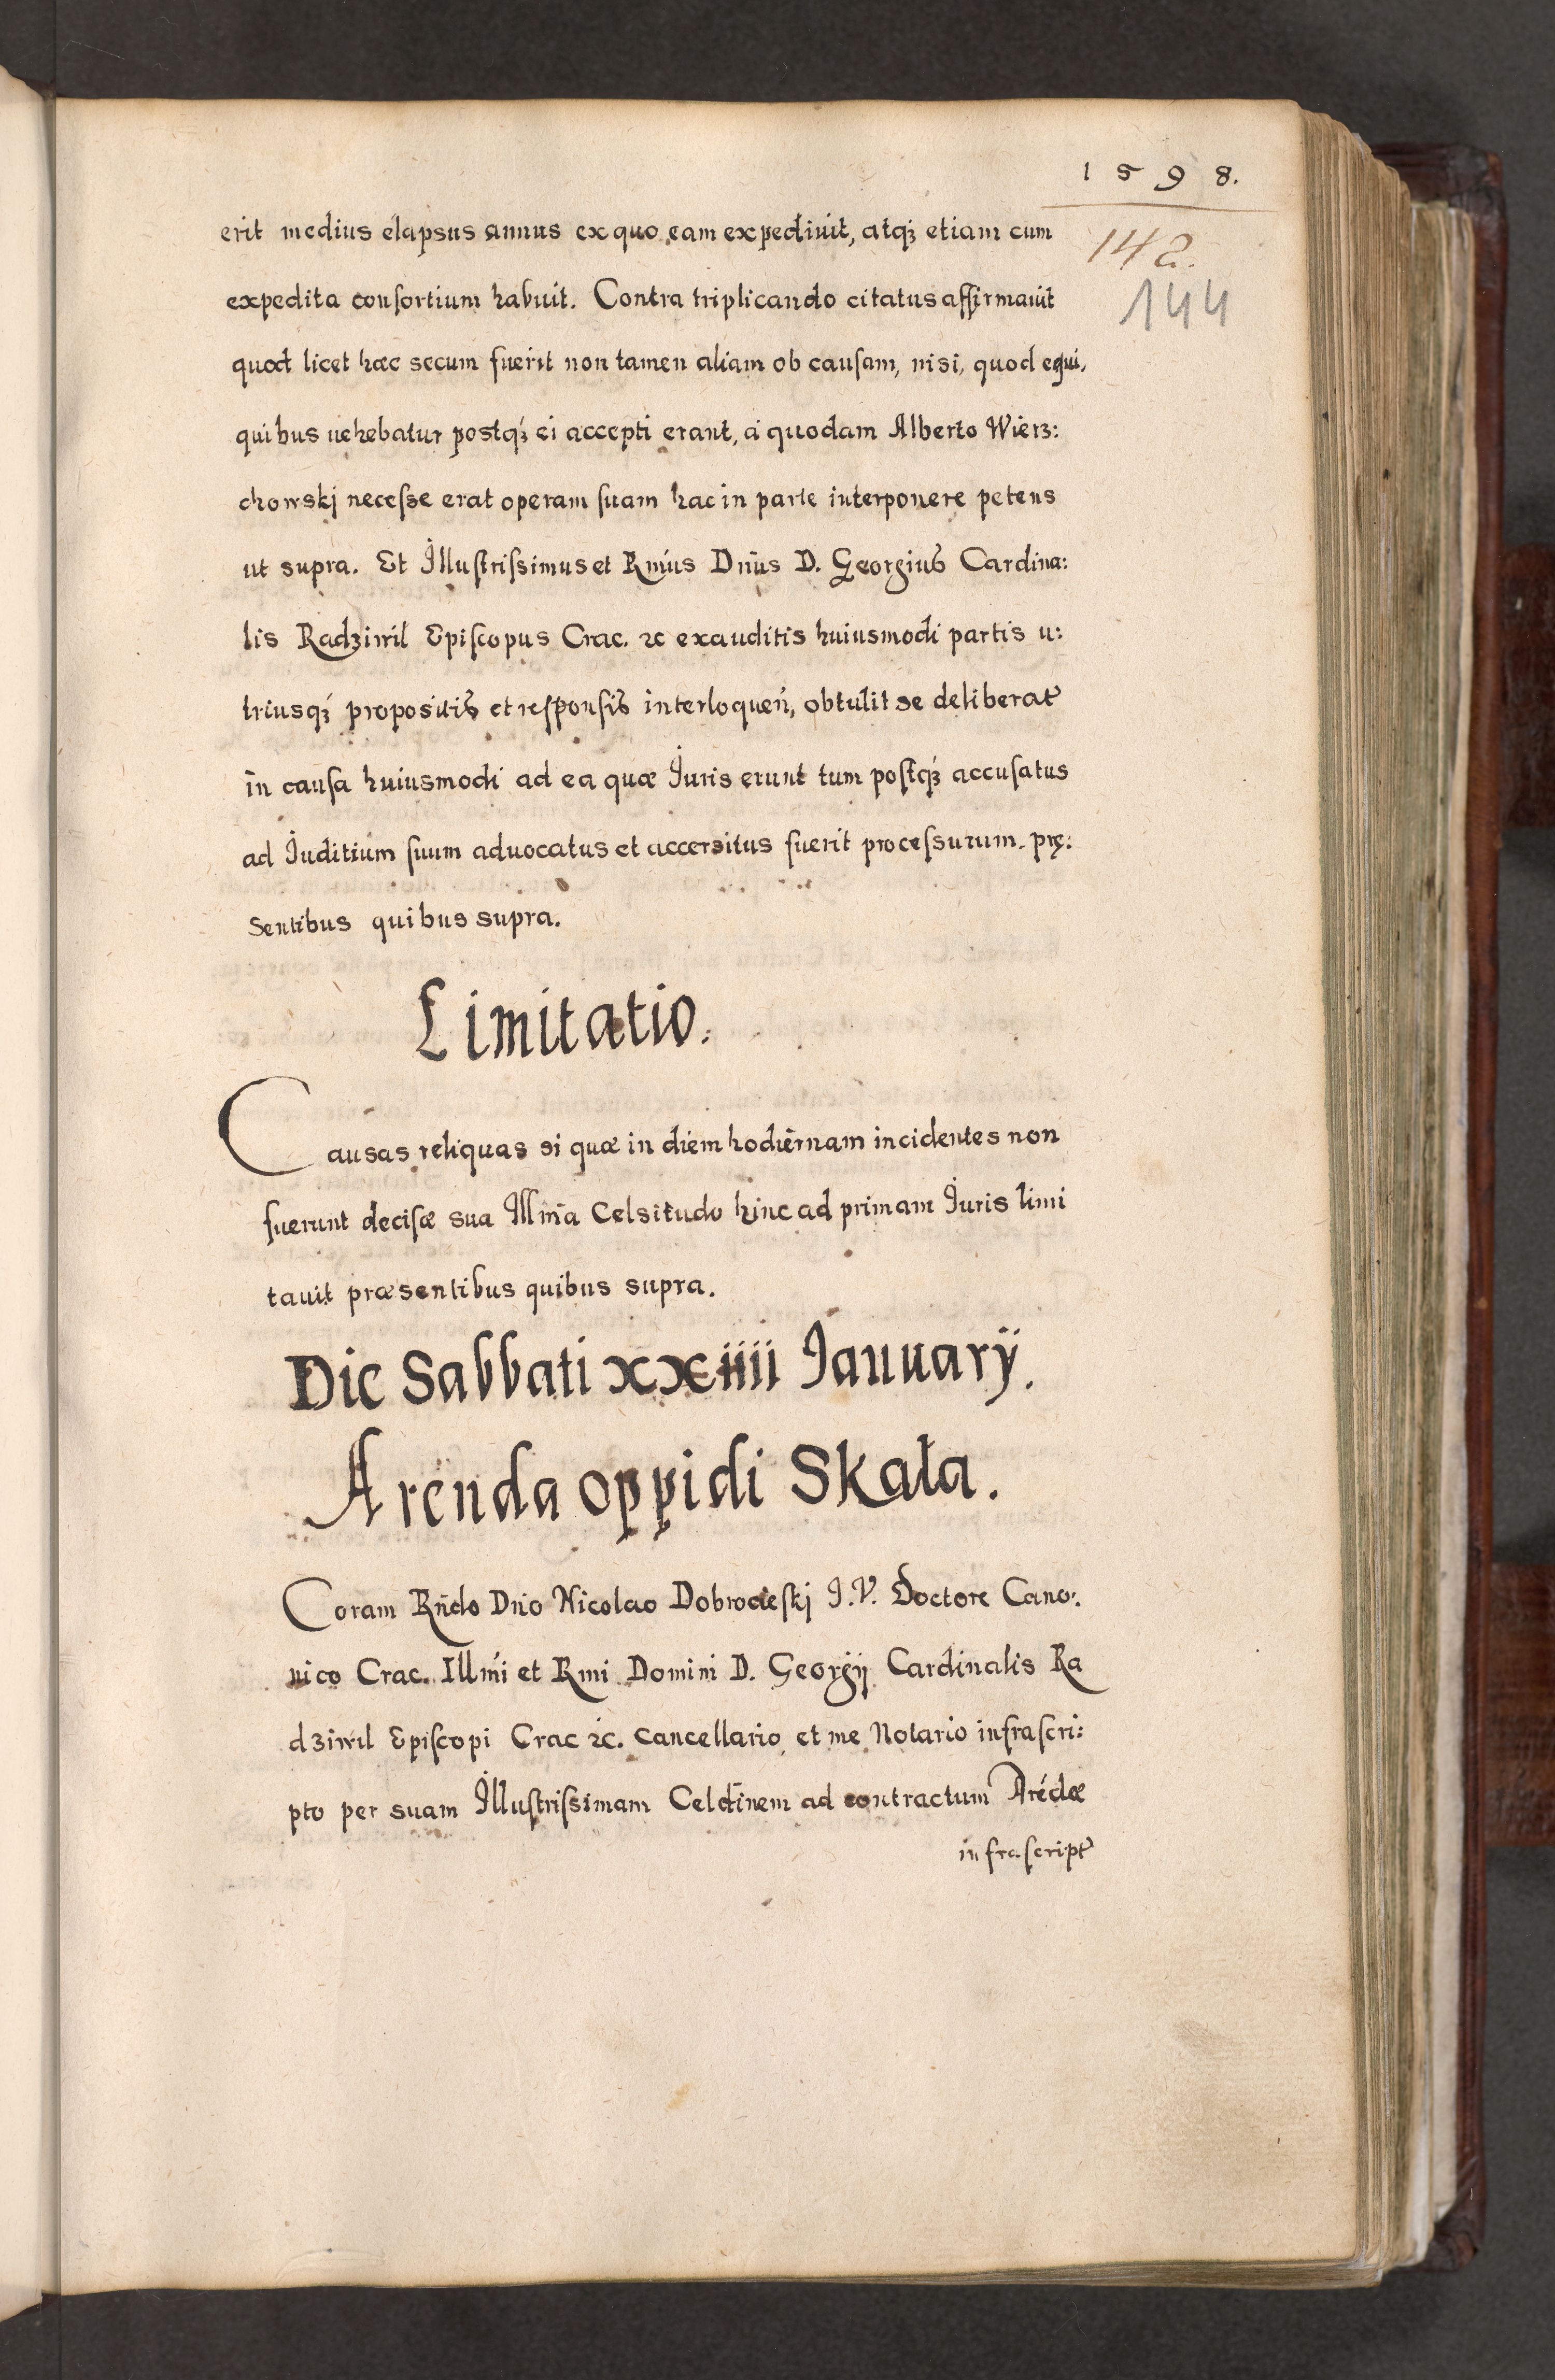 1598.
142.
144
erit medius elapsus annus ex quo eam expediuit, atqꝫ etiam cum
expedita consortium habuit. Contra triplicando citatus affirmauit
quod licet hæc secum fuerit non tamen aliam ob causam, nisi, quod equi,
quibus uehebatur postqꝫ ei accepti erant, á quodam Alberto Wierz:
chowskj necesse erat operam suam hac in parte interponere petens
ut supra. Et Illustrissimus et Rmús Dnūs D. Georgius Cardina:
lis Radziwil Episcopus Crac. ꝛc exauditis huiusmodi partis u:
triusqꝫ propositis et responsis interloqueń, obtulit se deliberat᷑
in causa huiusmodi ad ea quæ Juris erunt tum postqꝫ accusatus
ad Juditium suum aduocatus et accersitus fuerit processurum. prę:
sentibus quibus supra.
Limitatio.
Causas reliquas si quæ in diem hodiernam incidentes non
fuerunt decisæ sua Illmā Celsitudo hinc ad primam Juris limi
tauit præsentibus quibus supra.
Die Sabbati xxiiii Januarÿ.
Arenda oppidi Skała.
Coram Rńdo Dńo Nicolao Dobrocieskj J.V. Doctore Cano:
nico Crac. Illmí et Rmi Domini D. Georgij Cardinalis Ra
dziwil Episcopi Crac ꝛc. Cancellario et me Notario infrascri:
pto per suam Illustrissimam Celdīnem ad contractum Arēdæ
infrascript᷑